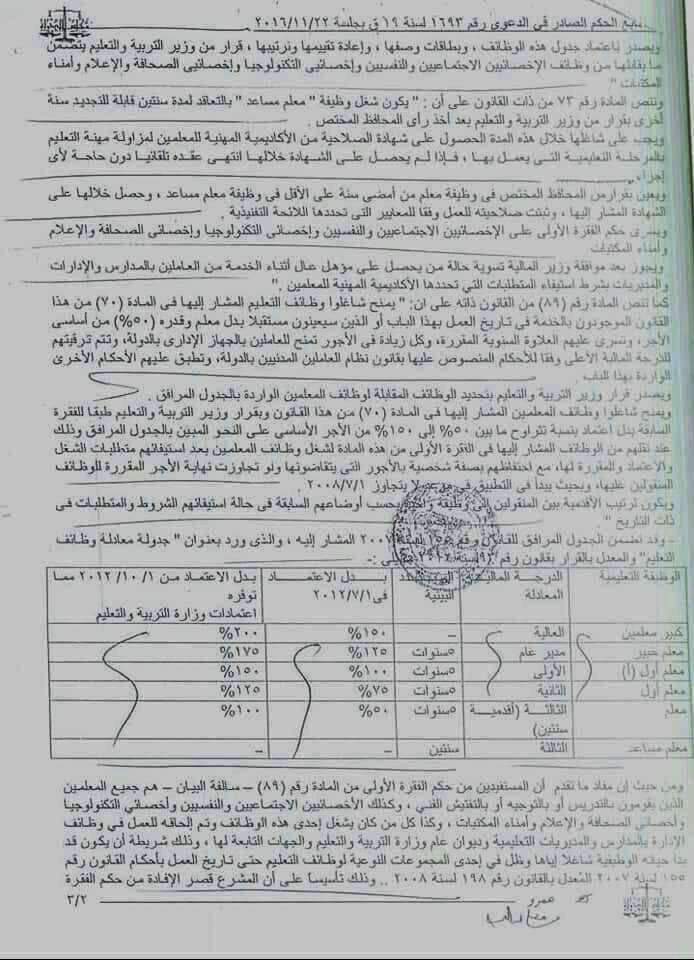 تابع الحكم الصادر في الدعوى رقم ١٦٩٣ لسنة ١٩ ق بجلسة ٢٠١٦/١١/٢٢
ويصدر باعتماد جدول هذه الوظائف ، وبطاقات وصفها ، وإعادة تقييمها وترتيبها ، قرار من وزير التربية والتعليم يتضمن
ما يقابلها من وظائف الإخصائيين الاجتماعيين والنفسيين وإخصائيي التكنولوجيا وإخصائيي الصحافة والإعلام وأمناء
المكتبات "
وتنص المادة رقم ٧٣ من ذات القانون على أن : " يكون شغل وظيفة " معلم مساعد " بالتعاقد لمدة سنتين قابلة للتجديد سنة
أخرى بقرار من وزير التربية والتعليم بعد أخذ رأى المحافظ المختص .
ويجب على شاغلها خلال هذه المدة الحصول على شهادة الصلاحية من الأكاديمية المهنية للمعلمين لمزاولة مهنة التعليم
بالمرحلة التعليمية التى يعمل بها ، فإذا لم يحصل على الشهادة خلالها انتهى عقده تلقائيا دون حاجة لأى
إجراء .
ويعين بقرار من المحافظ المختص فى وظيفة معلم من أمضى سنة على الأقل فى وظيفة معلم مساعد ، وحصل خلالها على
الشهادة المشار إليها ، وثبتت صلاحيته للعمل وفقا للمعايير التى تحددها اللائحة التنفيذية .
ويسرى حكم الفقرة الأولى على الإخصائيين الاجتماعيين والنفسيين وإخصائى التكنولوجيا وإخصائى الصحافة والإعلام
وأمناء المكتبات
ويجوز بعد موافقة وزير المالية تسوية حالة من يحصل على مؤهل عال أثناء الخدمة من العاملين بالمدارس والإدارات
والمديريات بشرط استيفاء المتطلبات التى تحددها الأكاديمية المهنية للمعلمين ."
كما تنص المادة رقم (٨٩) من القانون ذاته على ان: " يمنح شاغلوا وظائف التعليم المشار إليها فى المادة (٧٠) من هذا
القانون الموجودون بالخدمة في تاريخ العمل بهذا الباب أو الذين سيعينون مستقبلا بدل معلم وقدره (٥٠%) من أساسى
الأجر، وتسرى عليهم العلاوة السنوية المقررة، وكل زيادة فى الأجور تمنح للعاملين بالجهاز الإدارى بالدولة، وتتم ترقيتهم
للدرجة المالية الأعلى وفقا للأحكام المنصوص عليها بقانون نظام العاملين المدنيين بالدولة، وتطبق عليهم الأحكام الأخرى
الواردة بهذا الباب .
ويصدر قرار وزير التربية والتعليم بتحديد الوظائف المقابلة لوظائف المعلمين الواردة بالجدول المرافق .
ويمنح شاغلوا وظائف المعلمين المشار إليها فى المادة (٧٠) من هذا القانون وبقرار وزير التربية والتعليم طبقا للفقرة
السابقة بدل اعتماد بنسبة تتراوح ما بين ٥٠% إلى ١٥٠% من الأجر الأساسى على النحو المبين بالجدول المرافق وذلك
عند نقلهم من الوظائف المشار إليها فى الفقرة الأولى من هذه المادة لشغل وظائف المعلمين بعد استيفائهم متطلبات الشغل
والاعتماد والمقررة لها، مع احتفاظهم بصفة شخصية بالأجور التى يتقاضونها ولو تجاوزت نهاية الأجر المقررة للوظائف
المنقولين عليها، وبحيث يبدأ فى التطبيق فى موعد لا يتجاوز ٢٠٠٨/٧/١ .
ويكون ترتيب الأقدمية بين المنقولين إلى وظيفة واحدة بحسب أوضاعهم السابقة فى حالة استيفائهم الشروط والمتطلبات فى
ذات التاريخ " .
- وقد تضمن الجدول المرافق للقانون رقم ١٥٥ لسنة ٢٠٠٧ المشار إليه ، والذى ورد بعنوان " جدولة معادلة وظائف
التعليم" والمعدل بالقرار بقانون رقم ٩١ لسنة ٢٠١٢ :-
الوظيفة التعليمية | الدرجة المالية المعادلة | البينية | بدل الاعتماد فى ٢٠١٢/٧/١ | بدل الاعتماد من ٢٠١٢/١٠/١ مما توفره اعتمادات وزارة التربية والتعليم
كبير معلمين | العالية | – | ١٥٠% | ٢٠٠%
معلم خبير | مدير عام | ٥سنوات | ١٢٥% | ١٧٥%
معلم أول (أ) | الأولى | ٥سنوات | ١٠٠% | ١٥٠%
معلم أول | الثانية | ٥سنوات | ٧٥% | ١٢٥%
معلم | الثالثة (أقدمية سنتين) | ٥سنوات | ٥٠% | ١٠٠%
معلم مساعد | الثالثة | سنتين | – | –
ومن حيث إن مفاد ما تقدم أن المستفيدين من حكم الفقرة الأولى من المادة رقم (٨٩) – سالفة البيان – هم جميع المعلمين
الذين يقومون بالتدريس أو بالتوجيه أو بالتفتيش الفني ، وكذلك الأخصائيين الاجتماعيين والنفسيين وأخصائي التكنولوجيا
وأخصائي الصحافة والإعلام وأمناء المكتبات ، وكذا كل من كان يشغل إحدى هذه الوظائف وتم إلحاقه للعمل في وظائف
الإدارة بالمدارس والمديريات التعليمية وديوان عام وزارة التربية والتعليم والجهات التابعة لها ، وذلك شريطة أن يكون قد
بدأ حياته الوظيفية شاغلا إياها وظل في إحدى المجموعات النوعية لوظائف التعليم حتى تاريخ العمل بأحكام القانون رقم
١٥٥ لسنة ٢٠٠٧ المُعدل بالقانون رقم ١٩٨ لسنة ٢٠٠٨ .. وذلك تأسيسا على أن المشرع قصر الإفادة من حكم الفقرة
عمرو
٣/٢